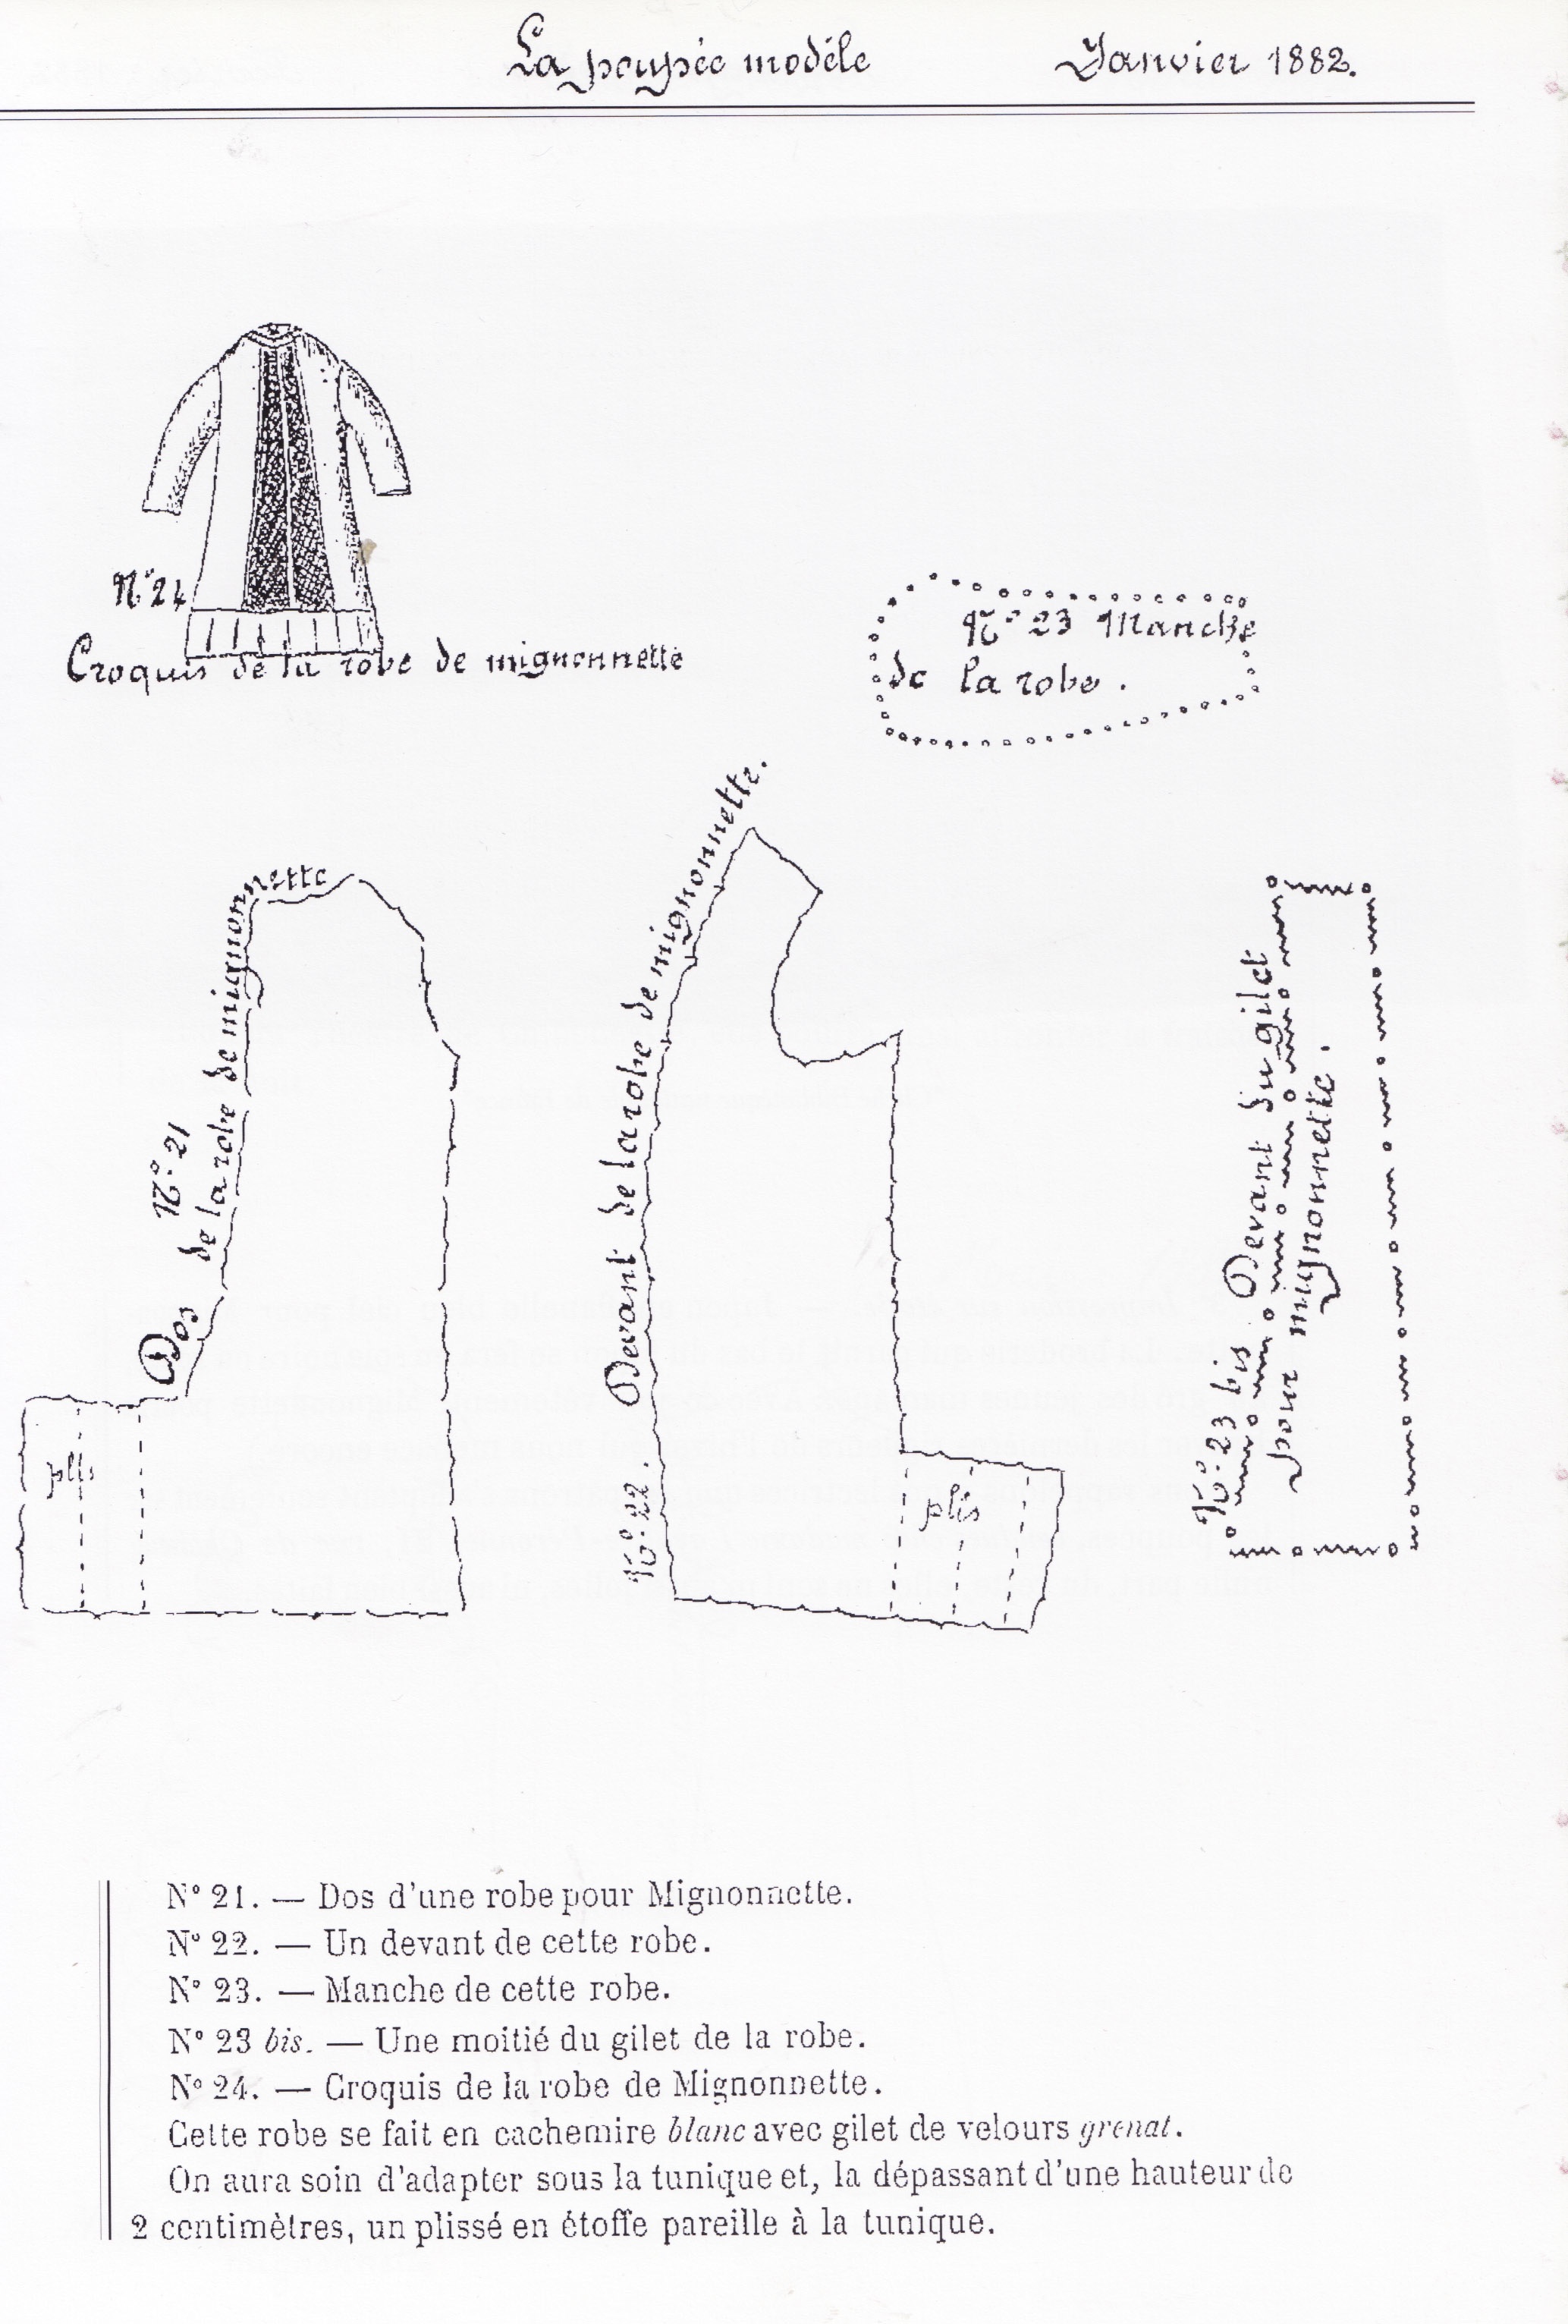 La poupée modèle Janvier 1882.
N° 24
Croquis de la robe de mignonnette
N° 23 Manche
de la robe.
N° 21
Dos de la robe de mignonnette
plis
N° 22. Devant de la robe de mignonnette.
plis
N° 23 bis Devant du gilet
pour mignonnette.
N° 21. — Dos d'une robe pour Mignonnette.
N° 22. — Un devant de cette robe.
N° 23. — Manche de cette robe.
N° 23 bis. — Une moitié du gilet de la robe.
N° 24. — Croquis de la robe de Mignonnette.
Cette robe se fait en cachemire blanc avec gilet de velours grenat.
On aura soin d'adapter sous la tunique et, la dépassant d'une hauteur de
2 centimètres, un plissé en étoffe pareille à la tunique.